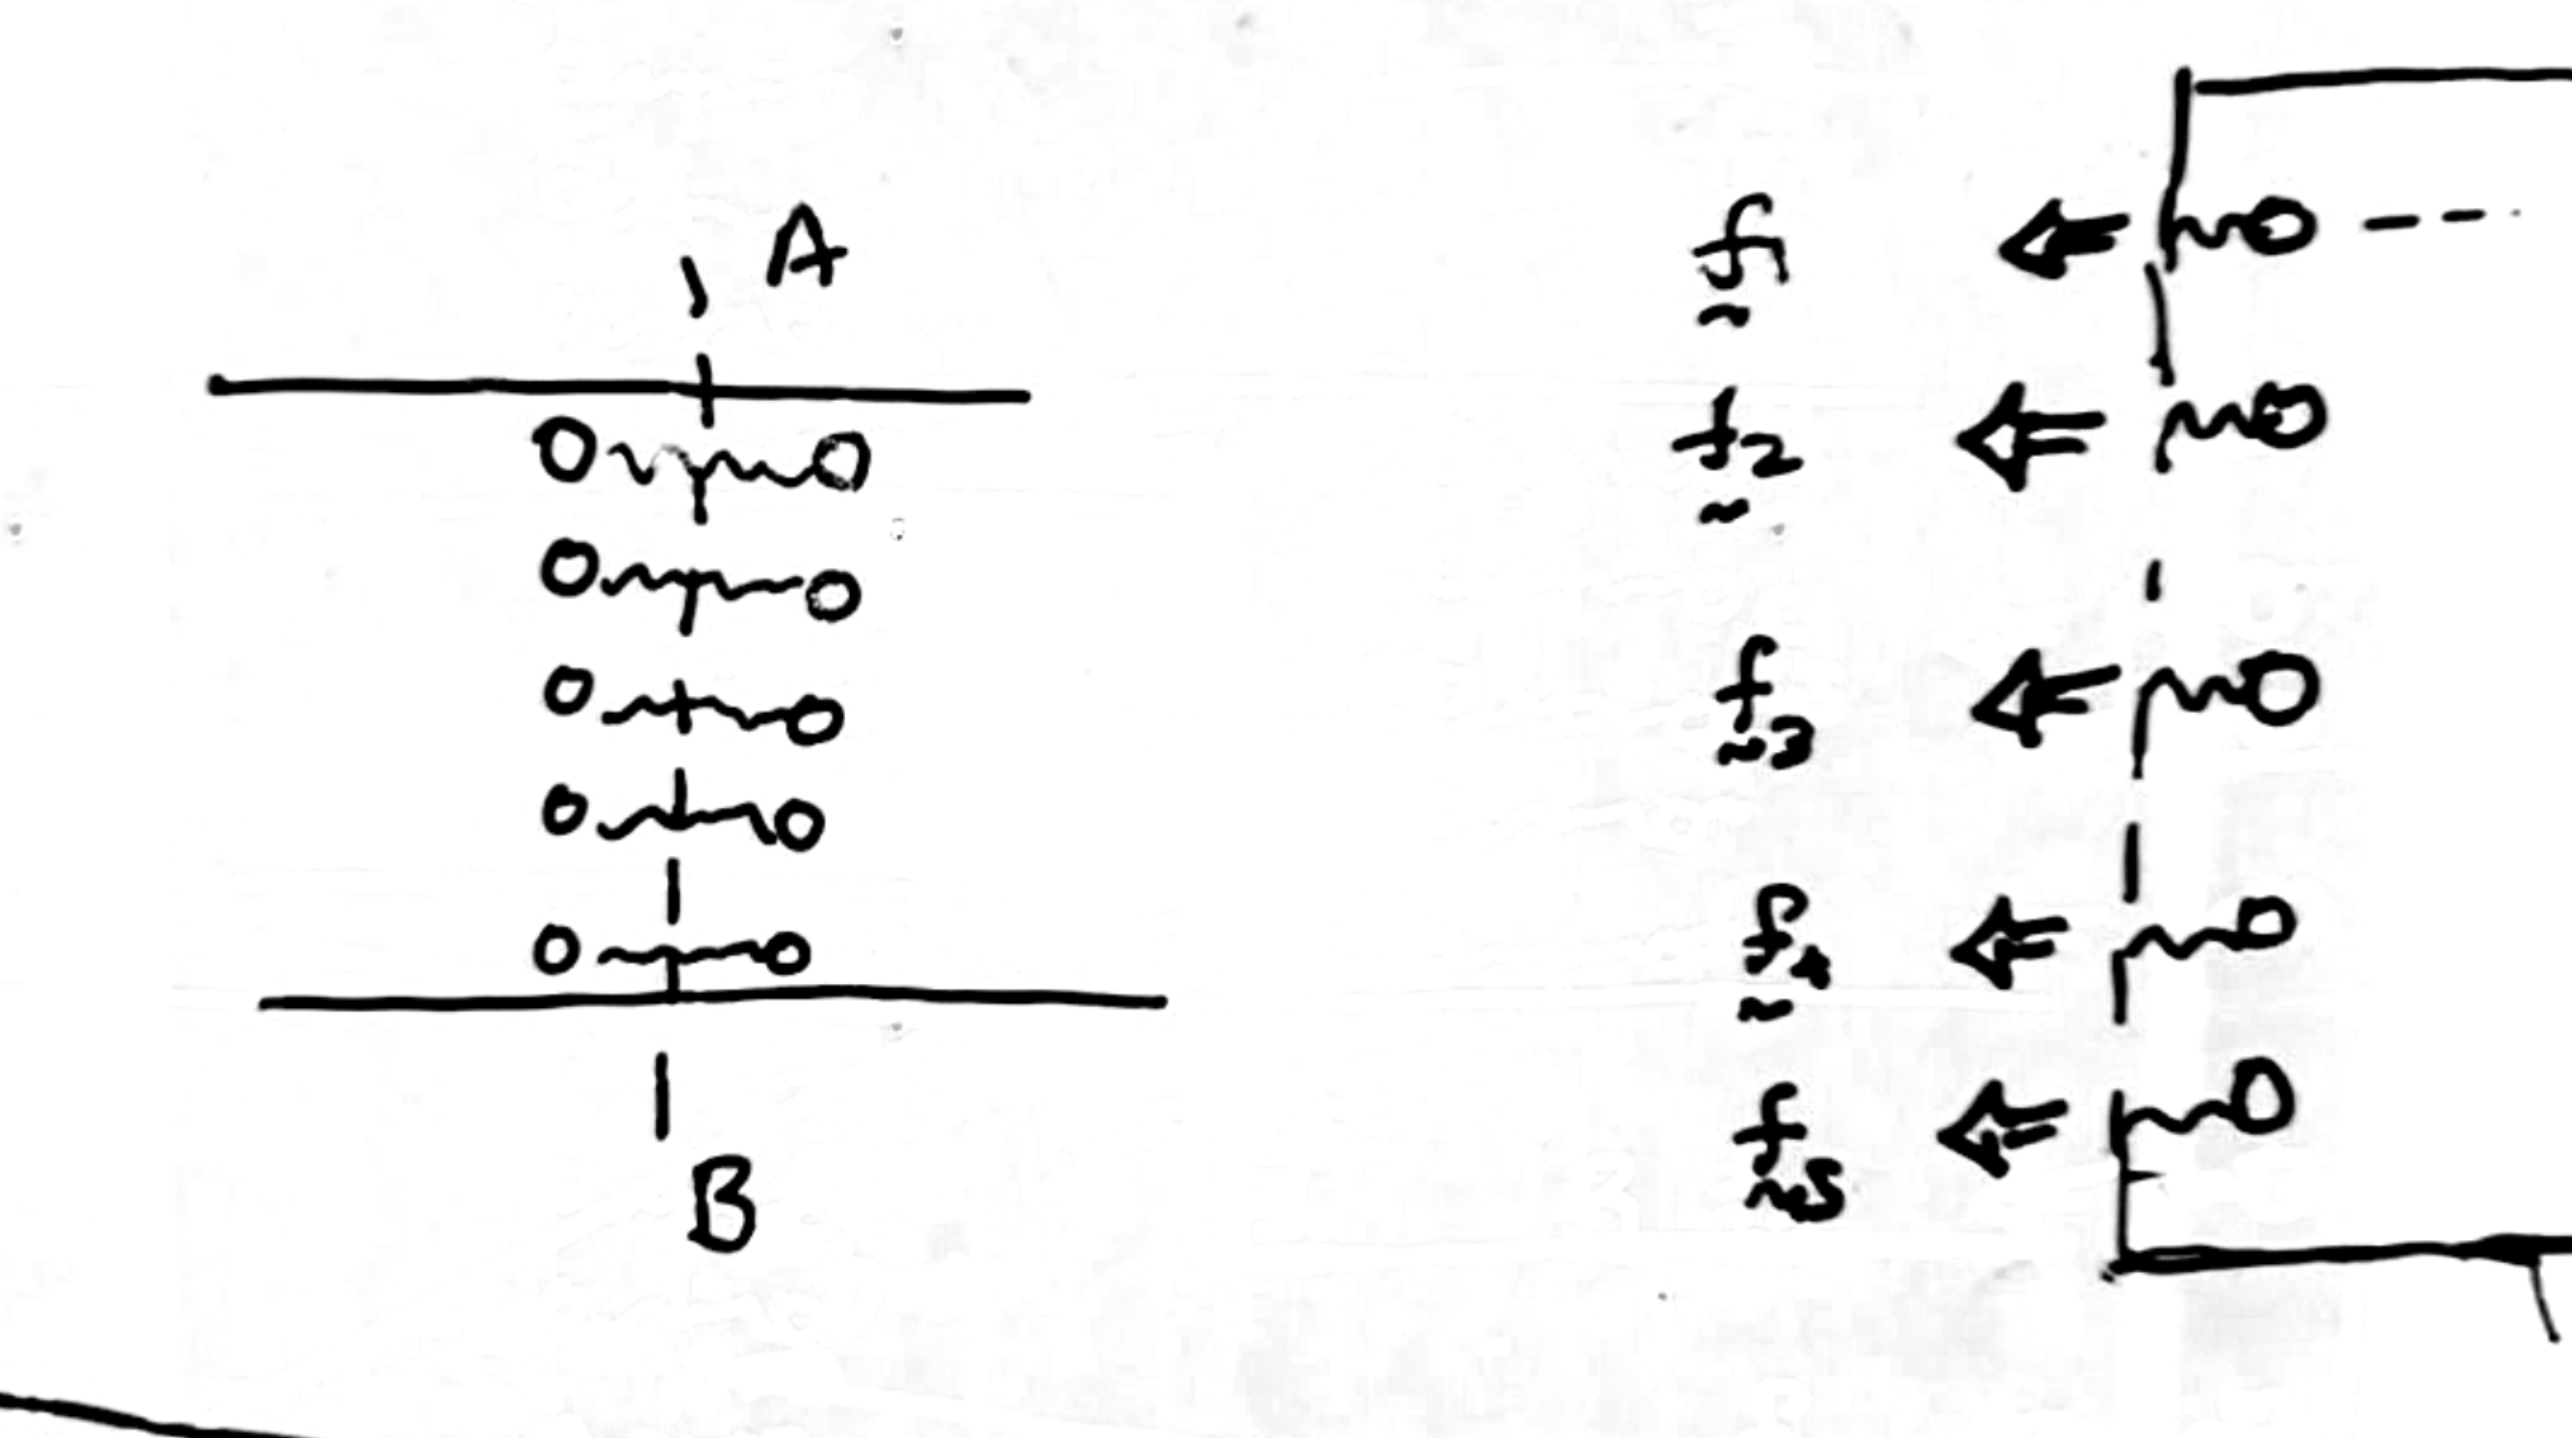 A
B
f1
f2
f3
f4
f5